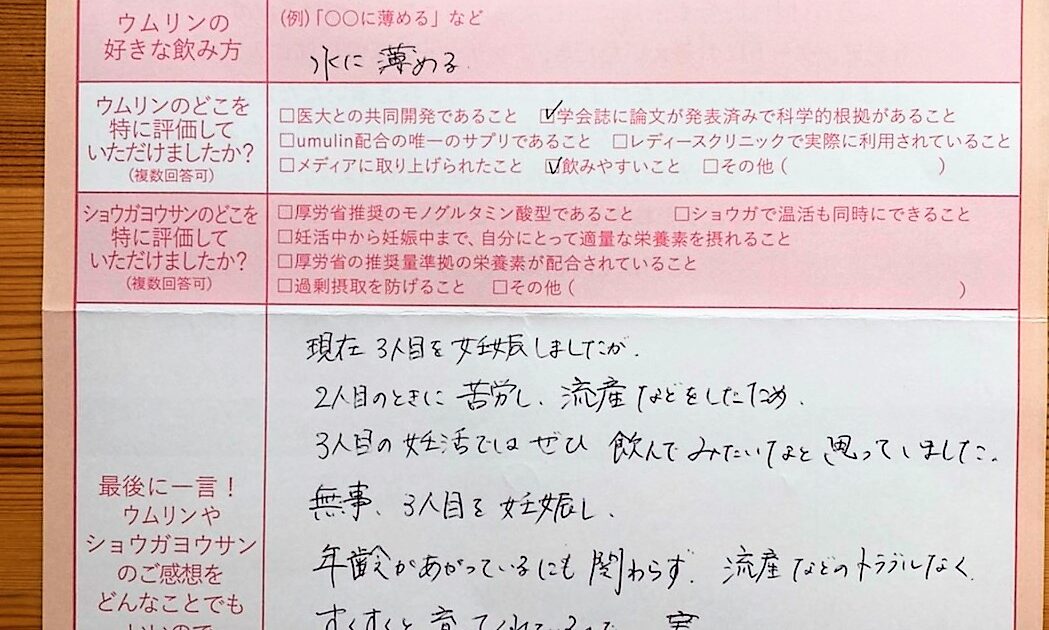 ウムリンの
好きな飲み方
(例)「〇〇に薄める」など
水に 薄める.
ウムリンのどこを
特に評価して
いただけましたか?
(複数回答可)
□医大との共同開発であること ☑学会誌に論文が発表済みで科学的根拠があること
□umulin配合の唯一のサプリであること □レディースクリニックで実際に利用されていること
□メディアに取り上げられたこと ☑飲みやすいこと □その他( )
ショウガヨウサンのどこを
特に評価して
いただけましたか?
(複数回答可)
□厚労省推奨のモノグルタミン酸型であること □ショウガで温活も同時にできること
□妊活中から妊娠中まで、自分にとって適量な栄養素を摂れること
□厚労省の推奨量準拠の栄養素が配合されていること
□過剰摂取を防げること □その他( )
最後に一言!
ウムリンや
ショウガヨウサン
のご感想を
どんなことでも
いいので
現在 3人目を妊娠しましたが、
2人目のときに 苦労し、流産などをしたため、
3人目の妊活ではぜひ 飲んでみたいなと思っていました。
無事、3人目を妊娠し、
年齢があがっているにも関わらず、流産などのトラブルなく
すくすくと育ってくれている